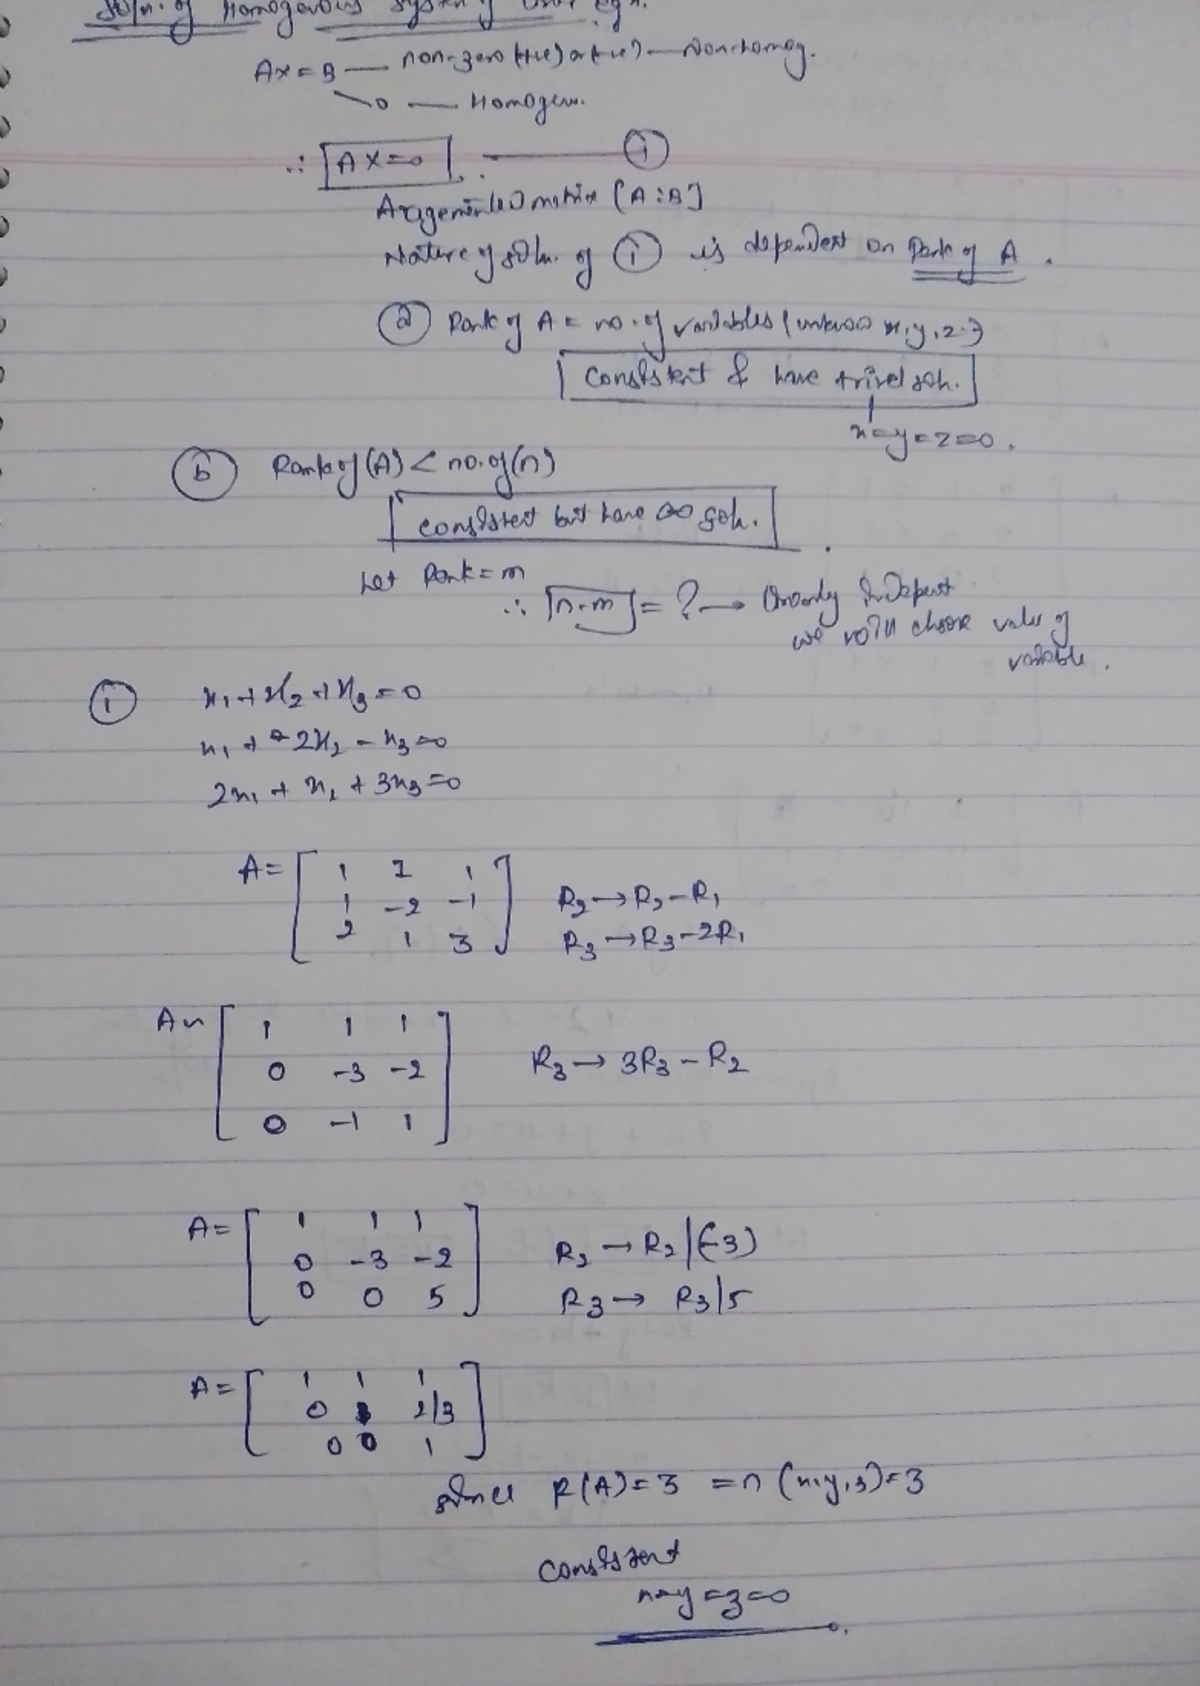 Soln. of Homogenous System of linear eqn.
AX = B — non-zero (+ve) or (-ve) — Non-homog.
0 — Homogen.
∴ AX = 0 — (i)
matrix [A : B]
Nature of soln. of (i) is dependent on Rank of A.
(a) Rank of A = no. of variables (unknown x, y, z..)
Consistent & have trivel soln.
x = y = z = 0.
(b) Rank of (A) < no. of (n)
Consistent but have ∞ soln.
Let Rank = m
∴ n-m = ? →
we will choose value of
variable.
(i) x₁ + x₂ + x₃ = 0
x₁ + -2x₂ - x₃ = 0
2x₁ + x₂ + 3x₃ = 0
A = [ 1 1 1
1 -2 -1 R₂ → R₂ - R₁
2 1 3 ] R₃ → R₃ - 2R₁
A ~ [ 1 1 1
0 -3 -2 R₃ → 3R₃ - R₂
0 -1 1 ]
A = [ 1 1 1
0 -3 -2 R₂ → R₂/(-3)
0 0 5 ] R₃ → R₃/5
A = [ 1 1 1
0 1 2/3
0 0 1 ]
since R(A) = 3 = n (x, y, z) = 3
Consistent
x = y = z = 0